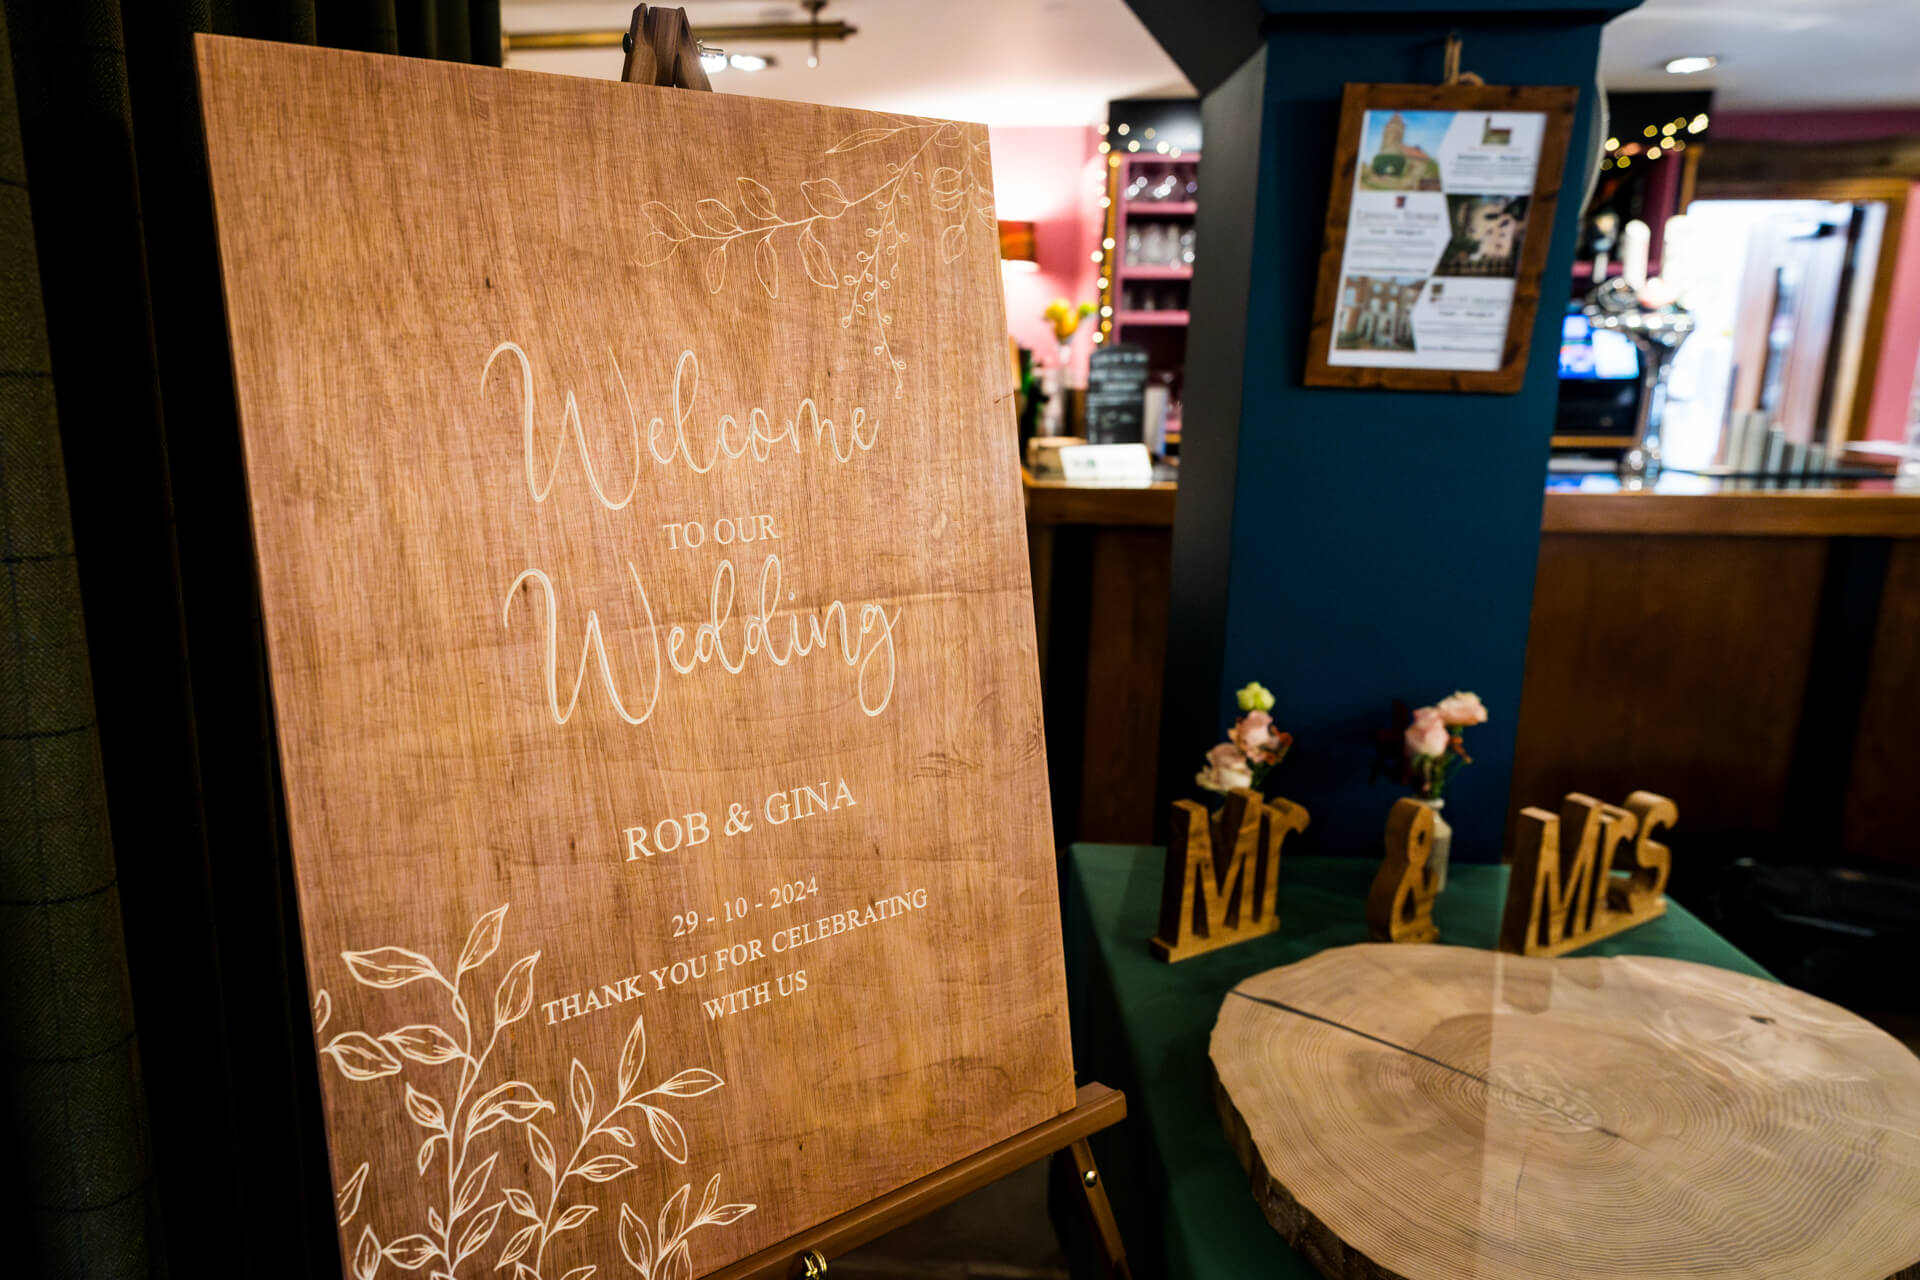 Welcome
TO OUR
Wedding
ROB & GINA
29 - 10 - 2024
THANK YOU FOR CELEBRATING
WITH US
Mr & Mrs